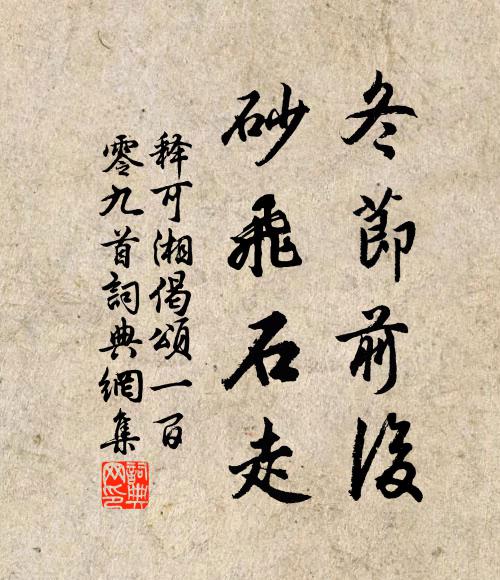 冬節前後
砂飛石走
釋可湘偈頌一百
零九首詞典網集
詞典网印